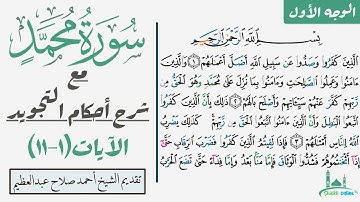 الوجه الأول
سُورَةُ مُحَمَّدٍ
مع
شرح أحكام التجويد
الآيات (١-١١)
تقديم الشيخ أحمد صلاح عبدالعظيم
بِسْمِ اللَّهِ الرَّحْمَٰنِ الرَّحِيمِ
الَّذِينَ كَفَرُوا وَصَدُّوا عَن سَبِيلِ اللَّهِ أَضَلَّ أَعْمَالَهُمْ ١ وَالَّذِينَ
آمَنُوا وَعَمِلُوا الصَّالِحَاتِ وَآمَنُوا بِمَا نُزِّلَ عَلَىٰ مُحَمَّدٍ وَهُوَ الْحَقُّ مِن
رَّبِّهِمْ كَفَّرَ عَنْهُمْ سَيِّئَاتِهِمْ وَأَصْلَحَ بَالَهُمْ ٢ ذَٰلِكَ بِأَنَّ الَّذِينَ كَفَرُوا
اتَّبَعُوا الْبَاطِلَ وَأَنَّ الَّذِينَ آمَنُوا اتَّبَعُوا الْحَقَّ مِن رَّبِّهِمْ كَذَٰلِكَ يَضْرِبُ
اللَّهُ لِلنَّاسِ أَمْثَالَهُمْ ٣ فَإِذَا لَقِيتُمُ الَّذِينَ كَفَرُوا فَضَرْبَ الرِّقَابِ حَتَّىٰ
إِذَا أَثْخَنتُمُوهُمْ فَشُدُّوا الْوَثَاقَ فَإِمَّا مَنًّا بَعْدُ وَإِمَّا فِدَاءً حَتَّىٰ تَضَعَ الْحَرْبُ